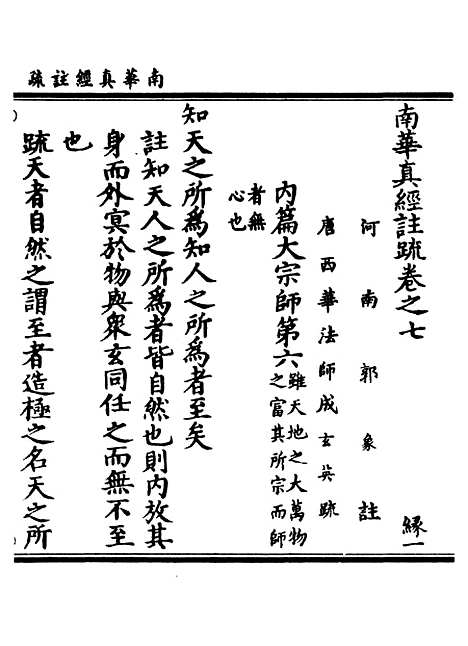 南華真經註疏
南華真經註疏卷之七　緣一
河南郭象註
唐西華法師成玄英疏
內篇大宗師第六雖天地之大萬物
之富其所宗而師
者無
心也
知天之所爲知人之所爲者至矣
註知天人之所爲者皆自然也則內放其
身而外冥於物與衆玄同任之而無不至
也
疏天者自然之謂至者造極之名天之所